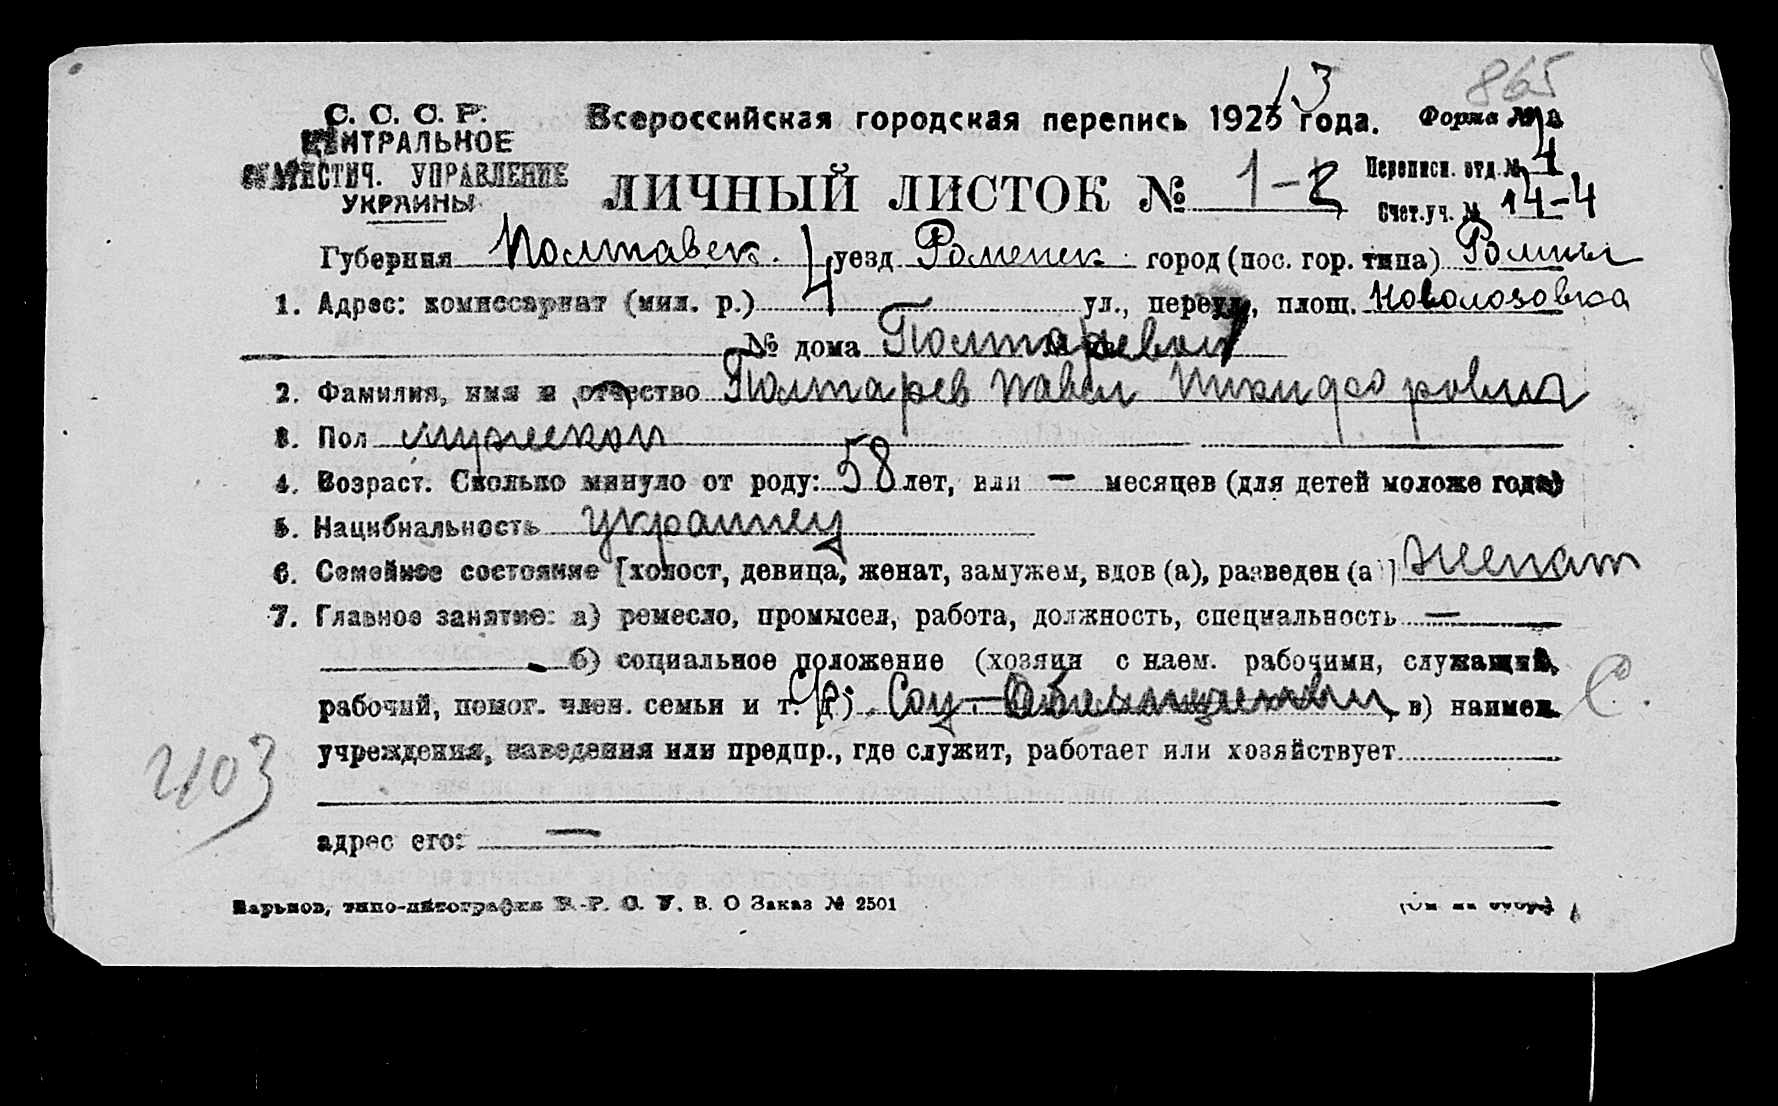 13 865
С. С. С. Р.
ЦЕНТРАЛЬНОЕ
СТАТИСТИЧ. УПРАВЛЕНИЕ
УКРАИНЫ
Всероссийская городская перепись 1923 года. Форма №
ЛИЧНЫЙ ЛИСТОК № 1-2
Переписн. отд. № 4
Счет. уч. № 14-4
Губерния Полтавск. 4 уезд Роменск. город (пос. гор. типа) Ромны
1. Адрес: комиссариат (мил. р.) ул., переул., площ. Новолозовка
№ дома Полтаревой
2. Фамилия, имя и отчество Полтарев Павел Никифорович
3. Пол мужской
4. Возраст. Сколько минуло от роду: 58 лет, или — месяцев (для детей моложе года)
5. Национальность украинец
6. Семейное состояние [холост, девица, женат, замужем, вдов (а), разведен (а)] женат
7. Главное занятие: а) ремесло, промысел, работа, должность, специальность —
б) социальное положение (хозяин с наем. рабочими, служащий,
рабочий, помог. член. семьи и т. д.) Соц-Обеспечения, в) наимен. С.
учреждения, заведения или предпр., где служит, работает или хозяйствует
403
адрес его: —
Харьков, типо-литография В. В. О Заказ № 2501